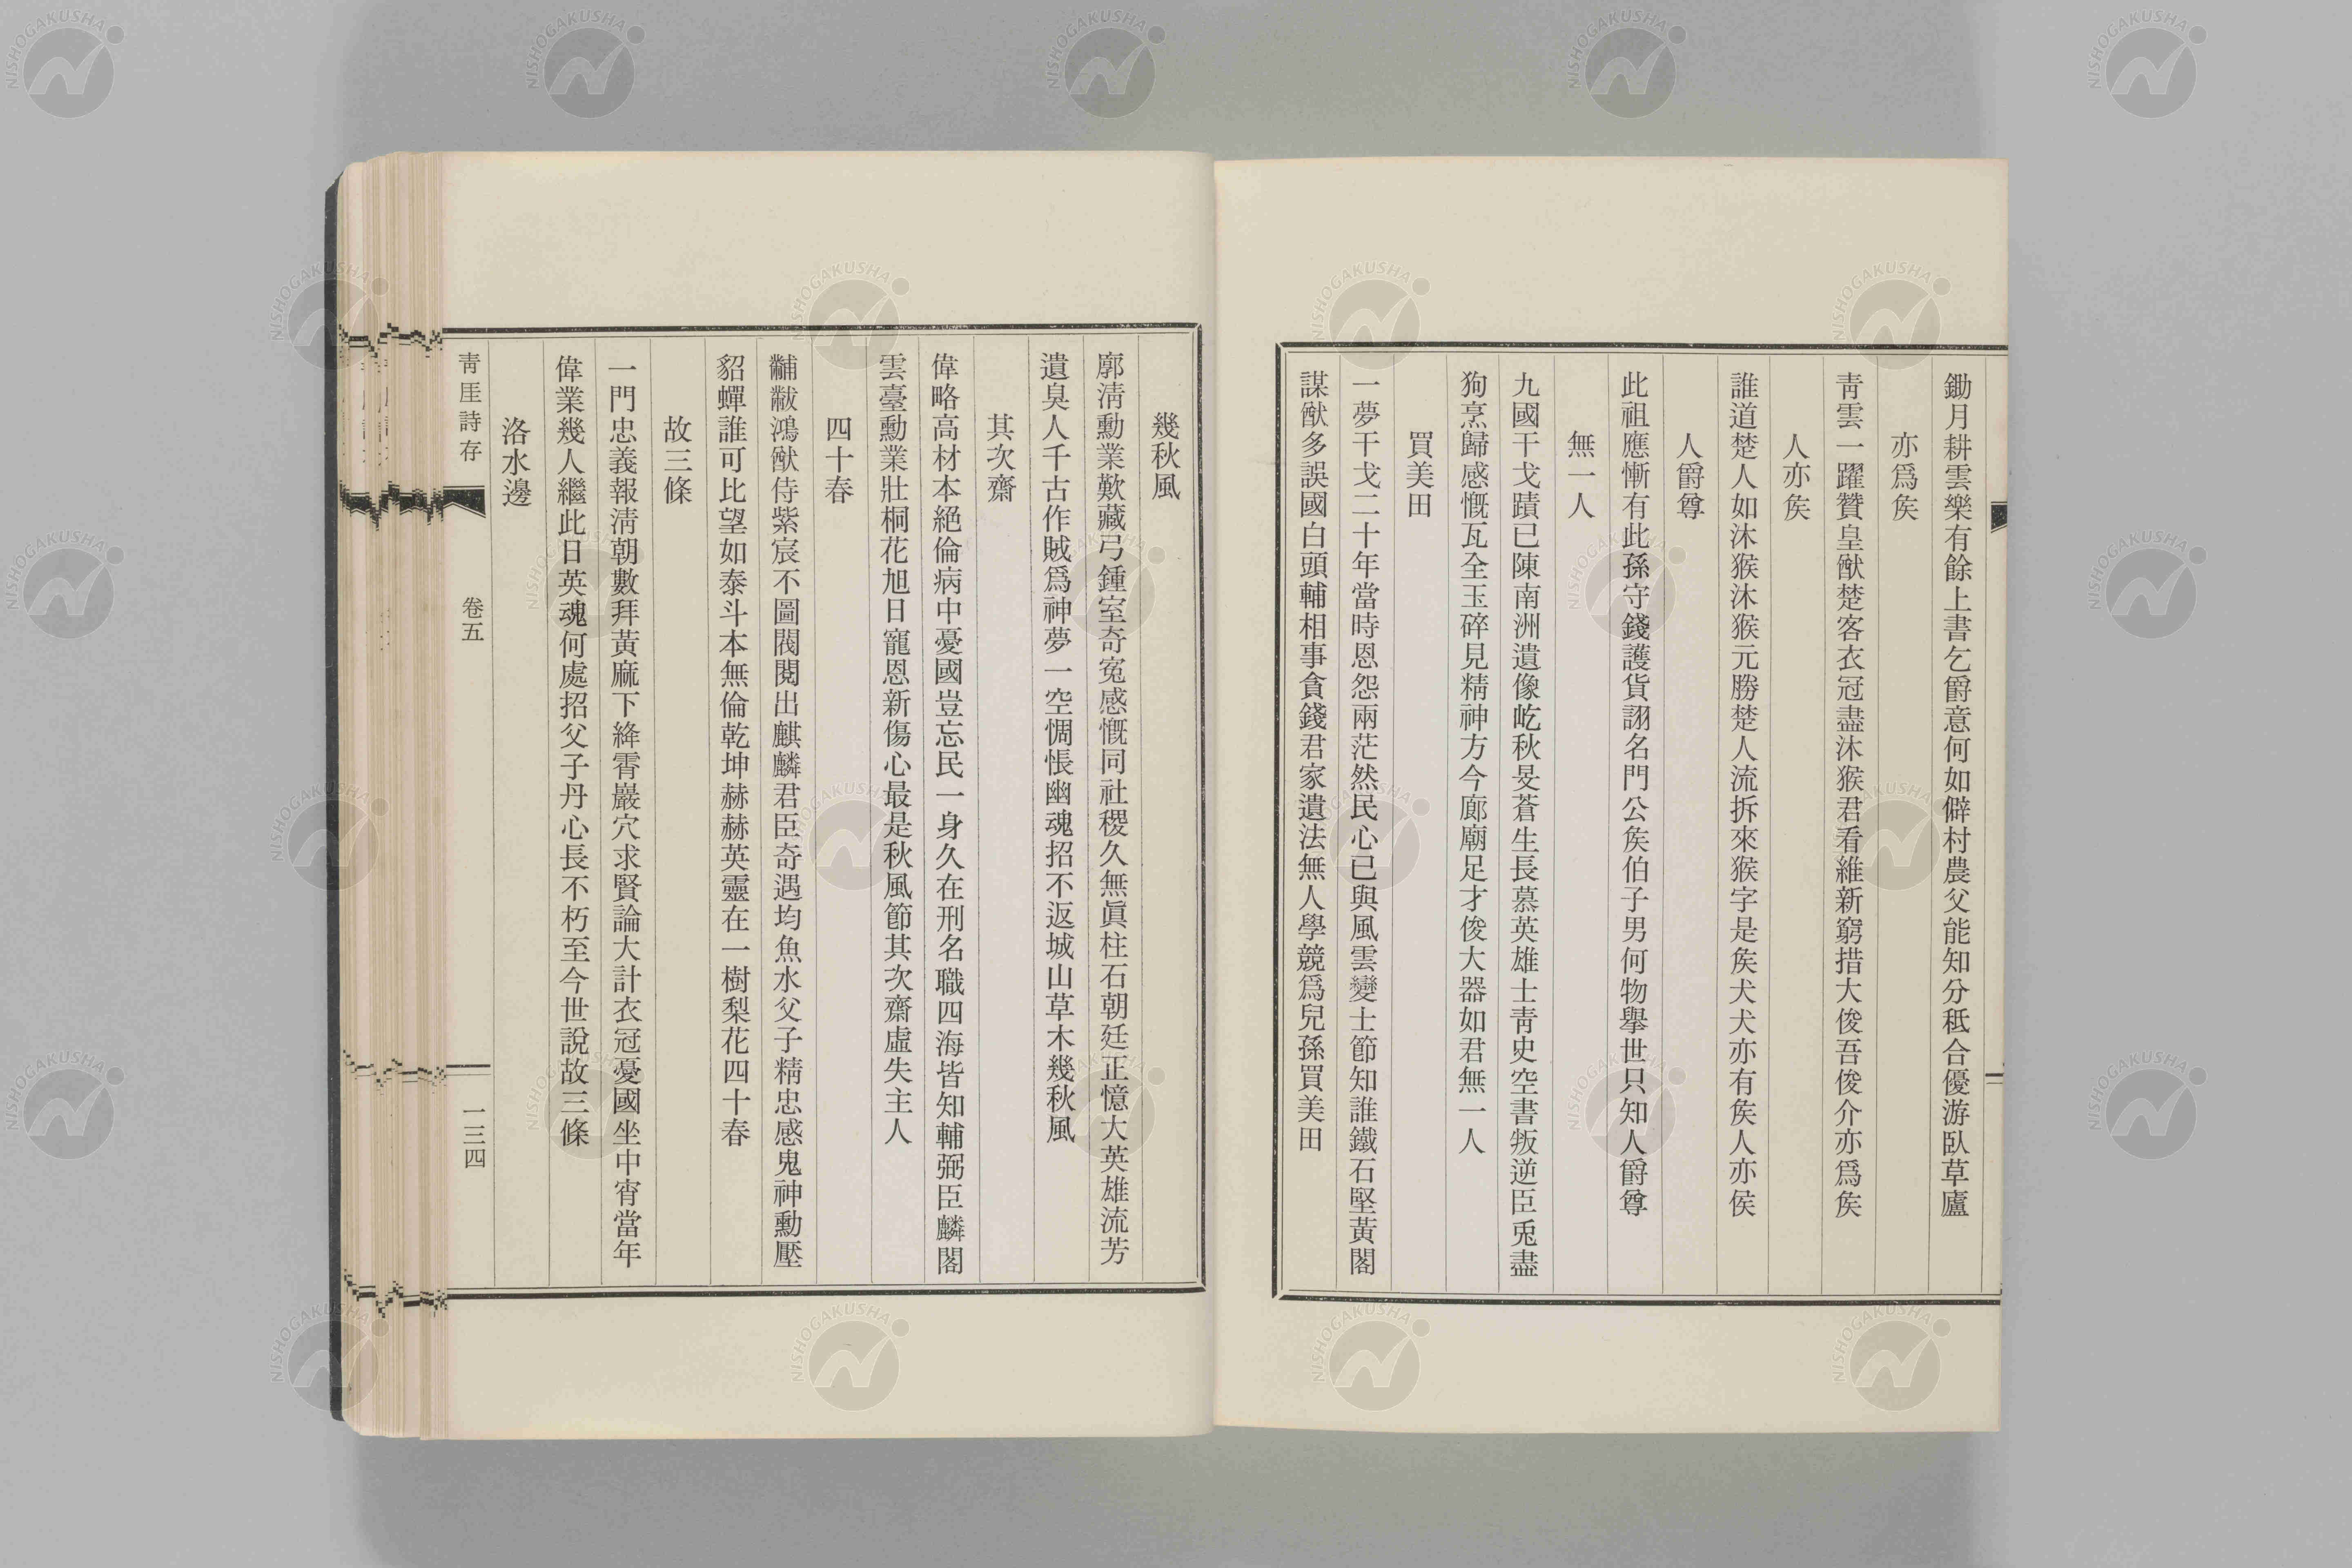 鋤月耕雲樂有餘上書乞爵意何如僻村農父能知分秪合優游臥草廬
亦爲矦
靑雲一躍贊皇猷楚客衣冠盡沐猴君看維新窮措大俊吾俊介亦爲矦
人亦矦
誰道楚人如沐猴沐猴元勝楚人流拆來猴字是矦犬犬亦有矦人亦侯
人爵尊
此祖應慚有此孫守錢護貨詡名門公矦伯子男何物擧世只知人爵尊
無一人
九國干戈蹟已陳南洲遺像屹秋旻蒼生長慕英雄士靑史空書叛逆臣兎盡
狗烹歸感慨瓦全玉碎見精神方今廊廟足才俊大器如君無一人
買美田
一夢干戈二十年當時恩怨兩茫然民心已與風雲變士節知誰鐵石堅黃閣
謀猷多誤國白頭輔相事貪錢君家遺法無人學競爲兒孫買美田
幾秋風
廓淸勳業歎藏弓鍾室奇寃感慨同社稷久無眞柱石朝廷正憶大英雄流芳
遺臭人千古作賊爲神夢一空惆悵幽魂招不返城山草木幾秋風
其次齋
偉略高材本絕倫病中憂國豈忘民一身久在刑名職四海皆知輔弼臣麟閣
雲臺勳業壯桐花旭日寵恩新傷心最是秋風節其次齋虛失主人
四十春
黼黻鴻猷侍紫宸不圖閥閱出麒麟君臣奇遇均魚水父子精忠感鬼神勳壓
貂蟬誰可比望如泰斗本無倫乾坤赫赫英靈在一樹梨花四十春
故三條
一門忠義報淸朝數拜黃麻下絳霄巖穴求賢論大計衣冠憂國坐中宵當年
偉業幾人繼此日英魂何處招父子丹心長不朽至今世說故三條
洛水邊
靑厓詩存
卷五
一三四
NISHOGAKUSHA